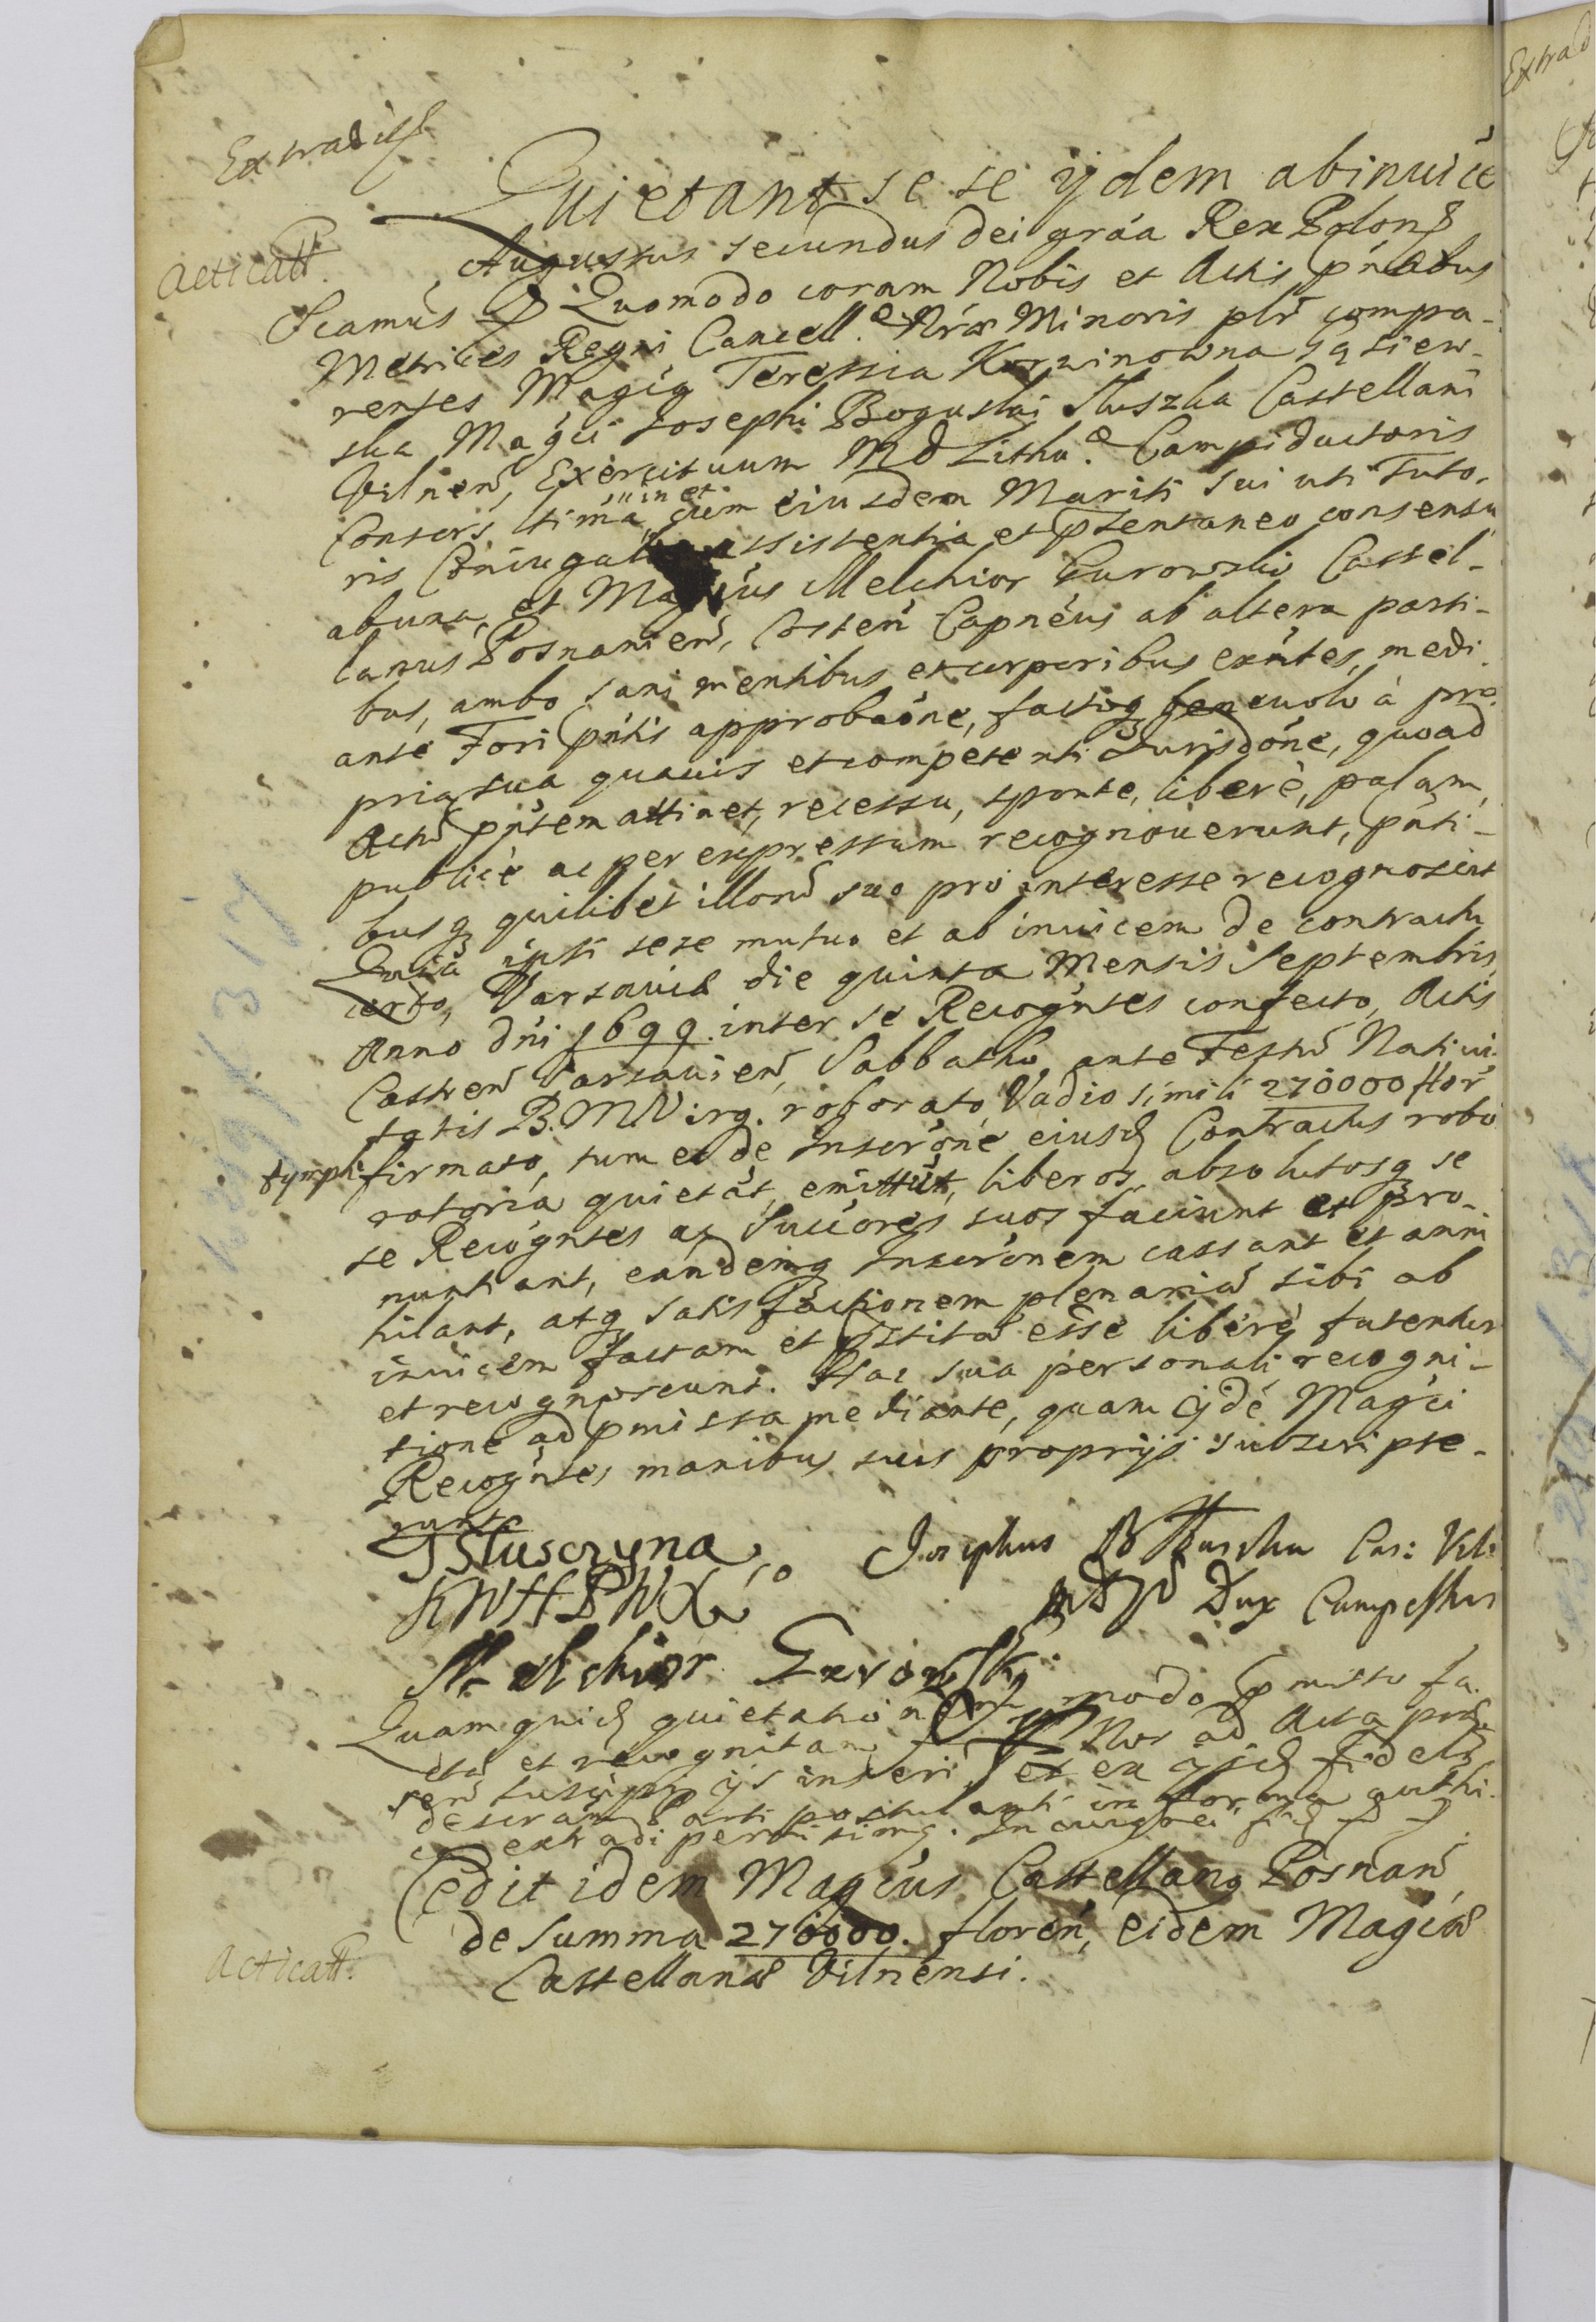 Extradit
Quietant se se ijdem abinuice
Acticatt.
Augustus secundus Dei grãa Rex Polon
Quomodo coram Nobis et Actis pñtibus
Metrices Regni Cancell. Nrae Minoris plr compa-
rentes Magca Teressia Korzinowna Gąsiew-
ska Magci Josephi Boguslai Sluszka Castellani
Vilnen, Exercituum M D Lithu. Campiductoris
Consors ltima, iũin et cum eiusdem Mariti sui uti Tuto-
ris Coniugalis assistentia et pstentaneo consensu
ab una, et Magcus Melchior Gurowski Castel-
lanus Posnanien, Costen Capneus ab altera parti-
bus, ambo sani mentibus et corporibus exñtes, medi
ante Fori pñtis approbaõne, factoq beneuolo à pro
pria sua quauis et competenti Jurisdõne, quoad
Actũ pñtem attinet, recessu, sponte, libere, palam,
publicè ac per expressum recognouerunt, pñti-
busq quilibet illorũ suo pro interesse recognoscit
Quia ipsi sese mutuo et ab inuicem de contractu
certo, Varsauiae die quinta Mensis Septembris
Anno dñi 1699. inter se Recogñtes confecto, Actis
Castren Varsauien, Sabbatho ante Festũ Natiui
tatis B. M. Virg. roborato, Vadio simili 270000 flor
tymph firmato, tum et de Inscrõne eiusd Contractus robo
ratoria quietãt, emittũt, liberos, absolutosq se
se Recogñtes ac Succõres suos faciunt et pro-
nuntiant, eandemq Inscrõnem cassant et anni
hilant, atq satisfactionem plenariã sibi ab
inuicem factam et pstitã esse liberè fatentur
et recognoscunt. Hac sua personali recogni-
tione ad pmissa mediante, quam ijdẽ Magci
Recogñtes manibus suis proprijs subscripse-
runt
TSluscyna
KWHPWXL
Josephus B Sluszka Cas: Vil:
MDL Dux Campestris
Melchior Gurowski
Quam quid quietationem modo pmisso fa-
ctã et recognitam Nos ad Acta prae
sen suscipi ijs inseri, et ex ijsd fideliter
descriptam parti postulanti in forma authen
extradi permisimus. In cuius rei fid
Cedit idem Magcus Castellanq Posnan
de summa 270000. floren, eidem Magcae
Acticatt.
Castellanae Vilnensi.